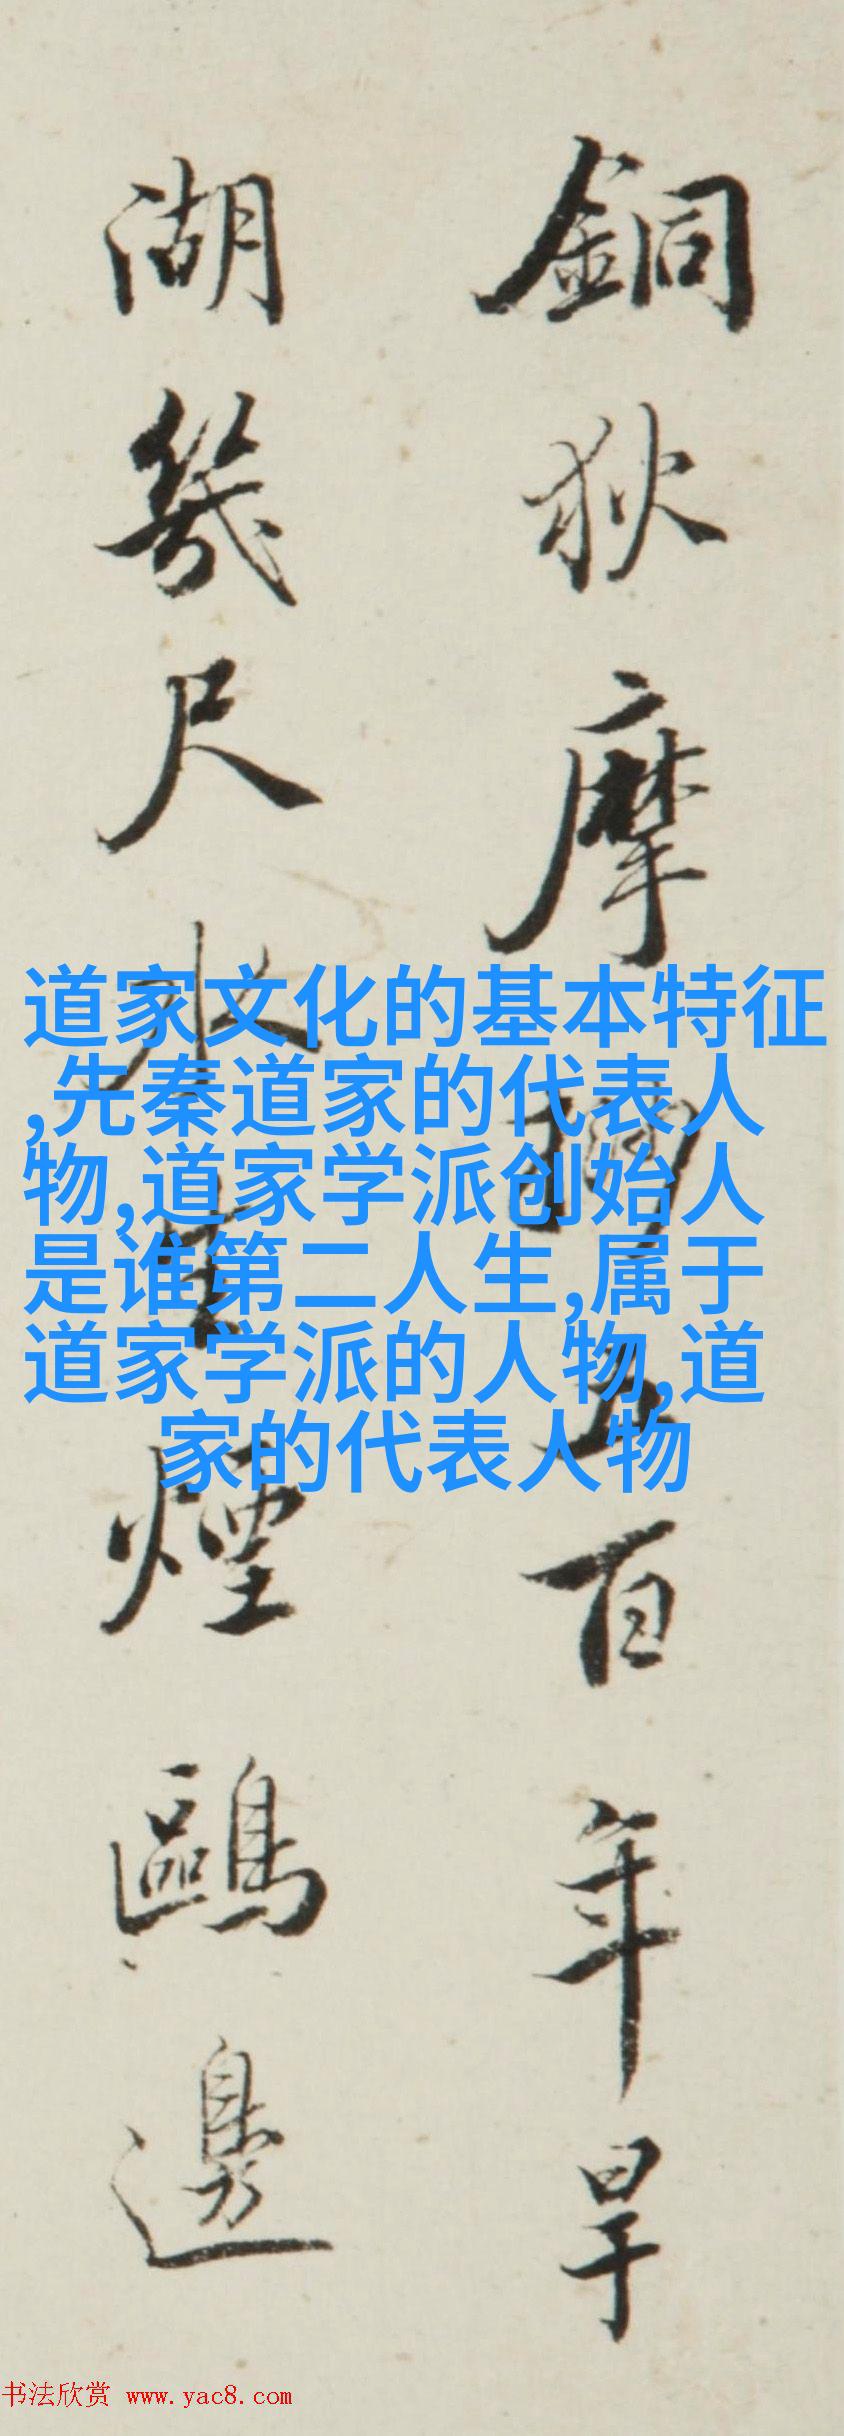 銅狄摩挲五百年旱
湖幾尺水生煙鷗邊
道家文化的基本特征
,先秦道家的代表人
物,道家学派创始人
是谁第二人生,属于
道家学派的人物,道
家的代表人物
书法欣赏 www.yac8.com